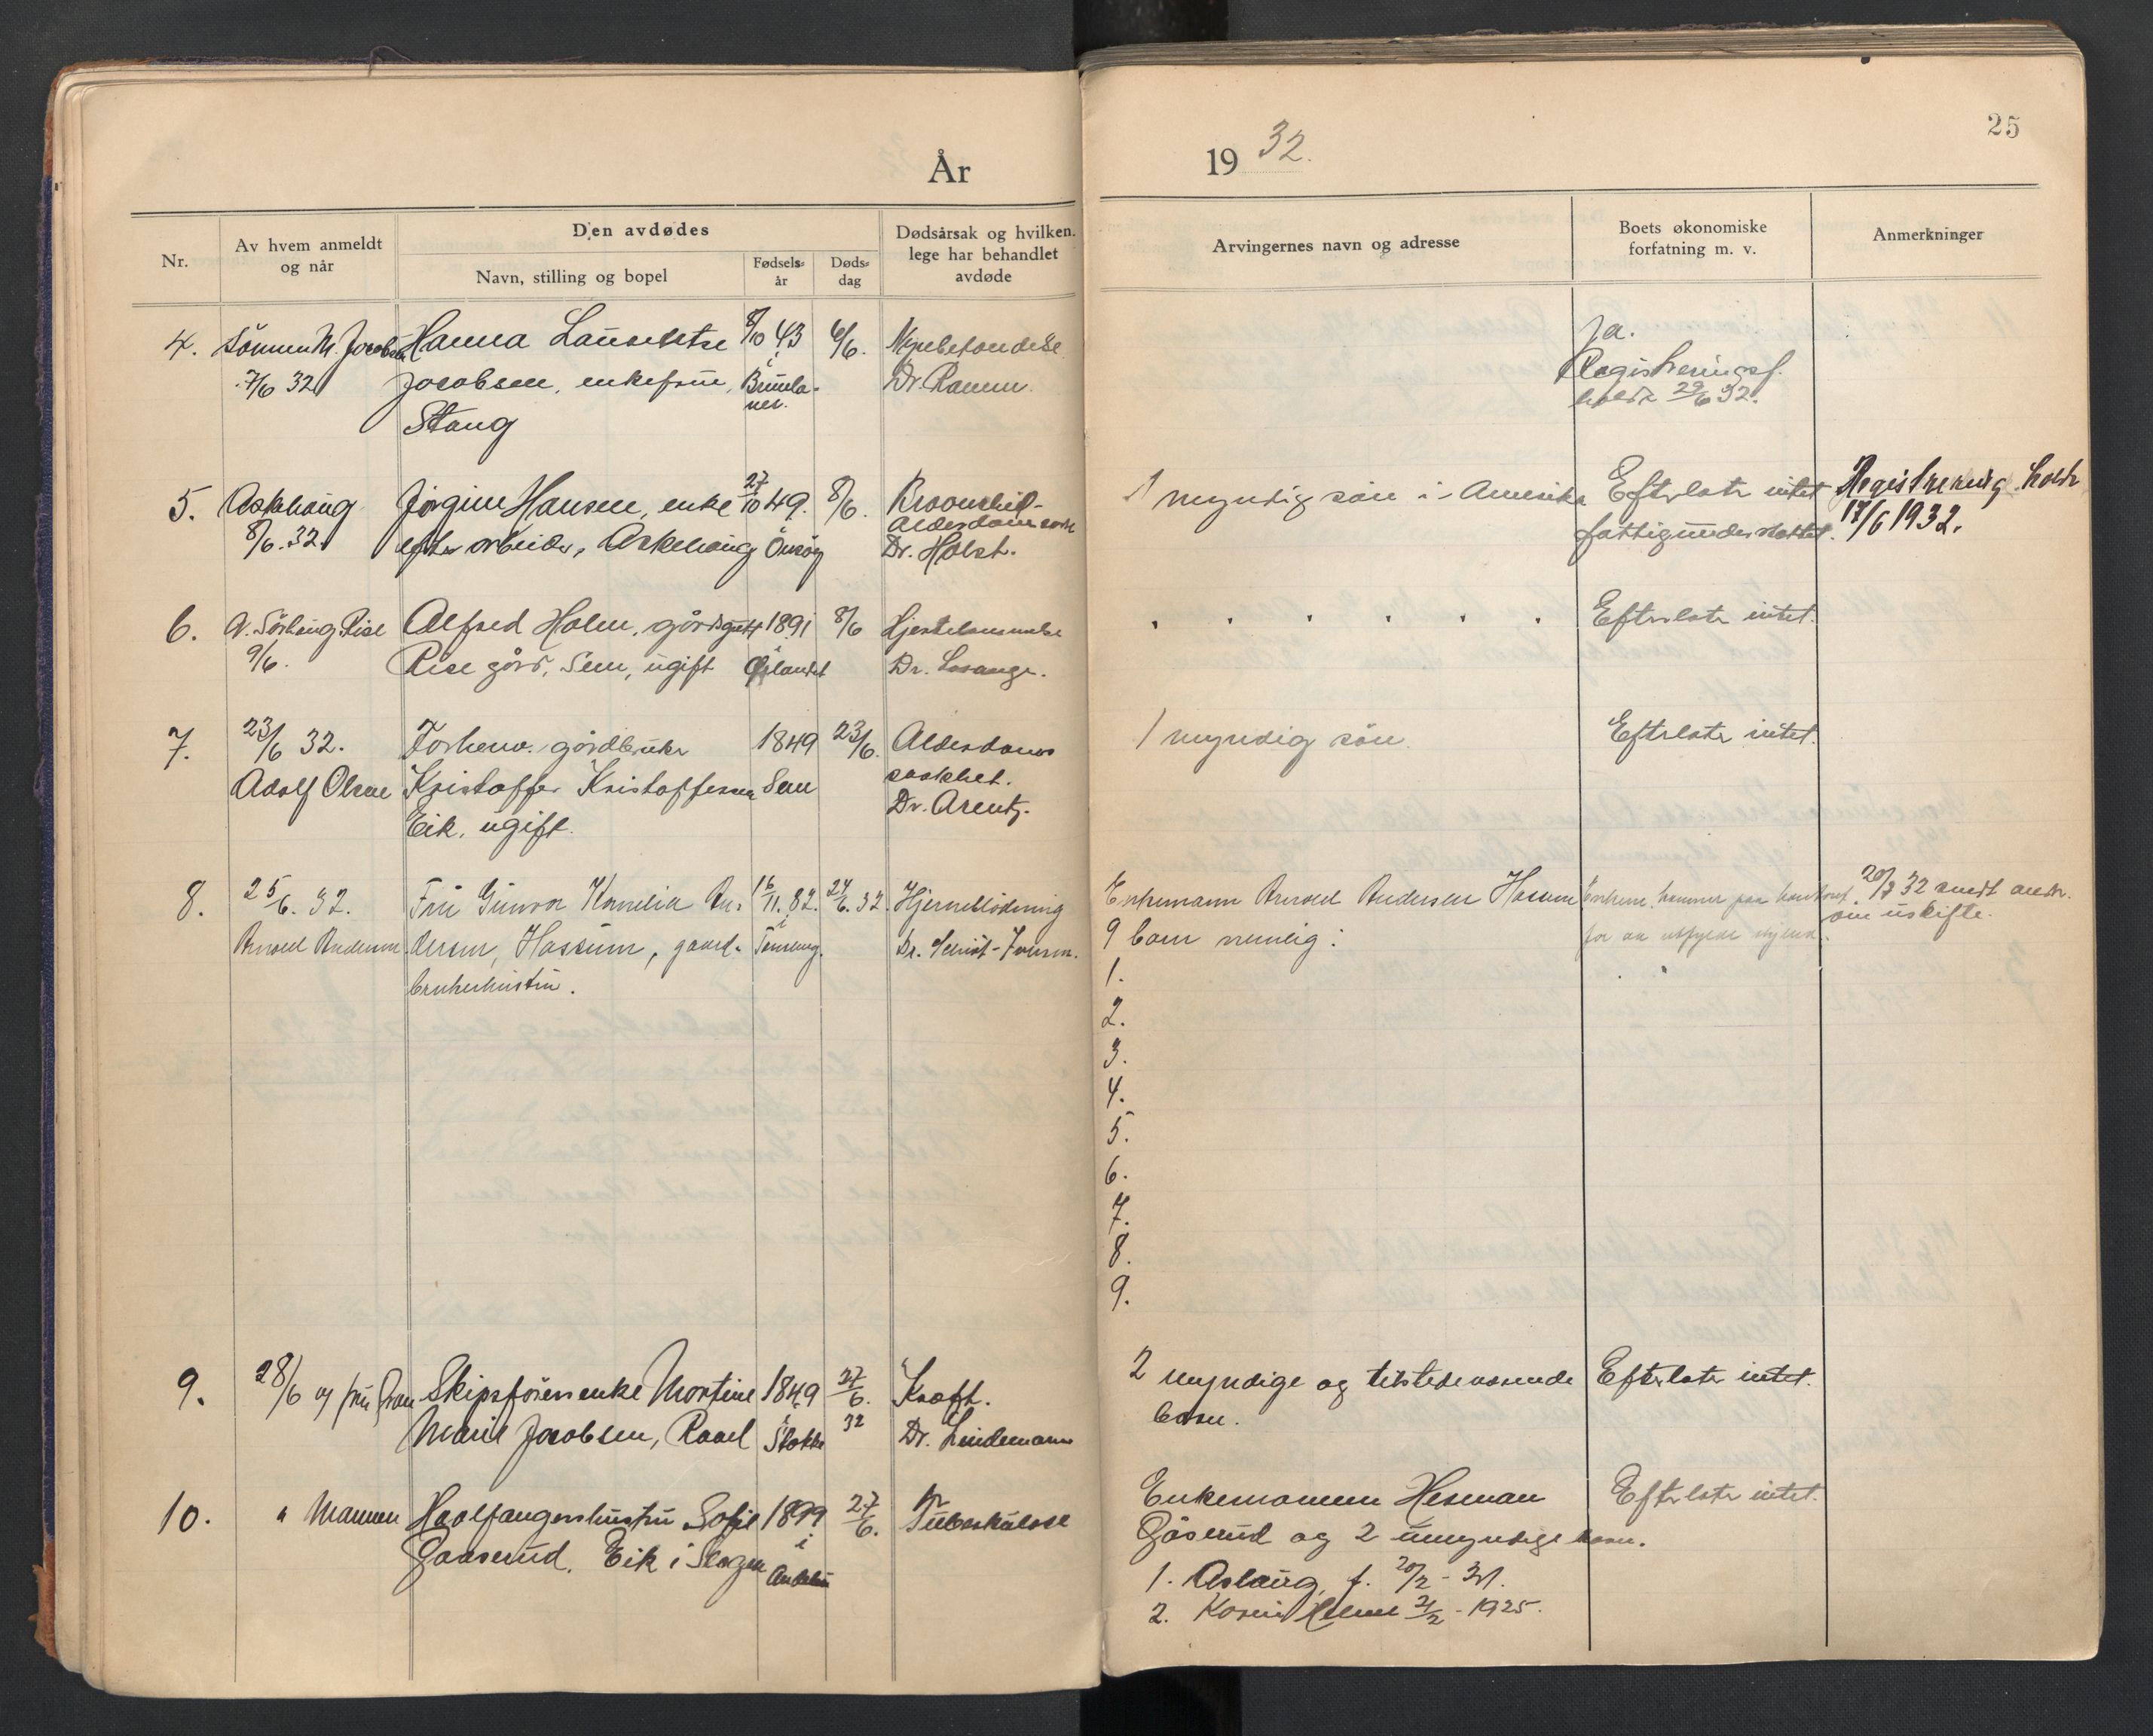 År
19 32.
25
Nr.
Av hvem anmeldt
og når
Den avdødes
Navn, stilling og bopel
Fødsels-
år
Døds-
dag
Dødsårsak og hvilken
lege har behandlet
avdøde
Arvingernes navn og adresse
Boets økonomiske
forfatning m. v.
Anmerkninger
4.
Sönnen M. Jacobsen
7/6 32
Hanna
Jacobsen, enkefrue,
Stang
8/10 43
i
Brunla-
nes.
6/6.
Nyrebetendelse
Dr. Ramm.
Ja.
Registreringsf.
holdt 29/6 32.
5.
Askehaug
8/6. 32
Jörgine Hansen, enke
efter arbeider, Askehaug
27/10 49.
Önsöy
8/6.
Alderdomssvak
Dr. Holst.
1 myndig sön i Amerika
Efterlater intet
fattigunderstöttet.
Registrering holdt
17/6 1932.
6.
A. Sörhaug Rise
9/6.
Alfred Holm, gårdsgutt
Rise gård, Sem, ugift
1891
i
8/6
Hjertelammelse
Dr.
Efterlater intet.
7.
23/6 32.
Adolf Olsen
Forhenv. gårdbruker
Kristoffer Kristoffersen
Eik, ugift.
1849
Sem
23/6.
Alderdoms
svakhet.
Dr. Arentz.
1 myndig sön.
Efterlater intet.
8.
25/6. 32.
Arnold Andersen
Fru Gunvor Kornelia An-
dersen, Hassum, gaard-
brukerhustru.
16/11. 82.
i
Tønsberg.
24/6. 32.
Hjerneblödning
Dr.
Enkemann Arnold Andersen Hassum
9 barn nemlig:
1.
2.
3.
4.
5.
6.
7.
8.
9.
Enkem. kommer paa kontoret
for aa utfylde skjema.
20/7 32 sendt andr.
om uskifte.
9.
28/6 av fru
Skipsförerenke Martine
Marie Jacobsen, Råel
1849
i
Stokke
27/6.
32
Kræft.
Dr. Lindemann
2 myndige og tilstedeværende
barn.
Efterlater intet.
10.
" Mannen
Hvalfangerhustru Sofie
Gaaserud, Eik i Slagen
1899
i
Andebu
27/6.
Tuberkulose
Enkemannen Herman
Gåserud og 2 umyndige barn.
1. Aslaug, f. 20/2 - 21.
2. Karin Helene 21/2 - 1925.
Efterlater intet.